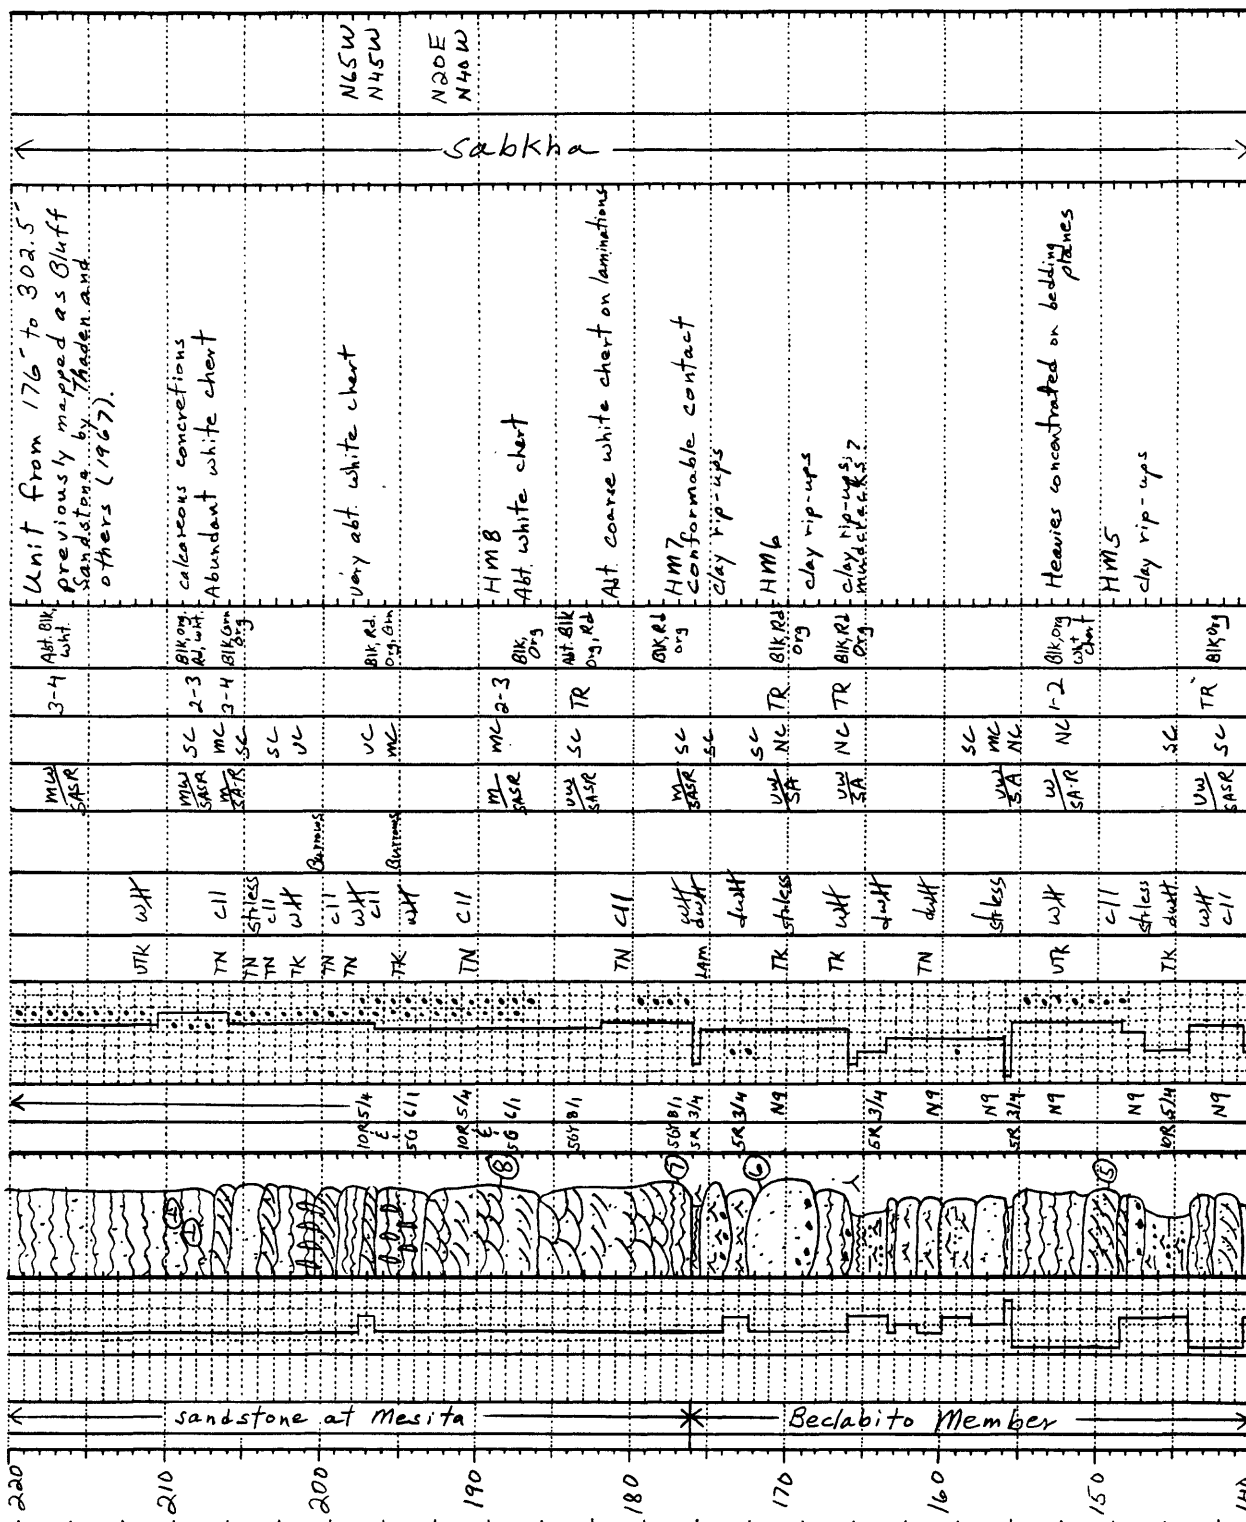 N65W
N45W
N20E
N40W
sabkha
Unit from 176- to 302.5-
previously mapped as Bluff
Sandstone by Thaden and
others (1967).
calcareous concretions
Abundant white chert
very abt white chert
HM8
Abt. white chert
Abt. coarse white chert on laminations
HM7
conformable contact
clay rip-ups
HM6
clay rip-ups
clay rip-ups;
mudcracks?
Heavies concentrated on bedding
planes
HM5
clay rip-ups
Abt. Blk,
wht.
Blk, org,
Rd, wht.
Blk, Grn
Org
Blk, Rd.
Org, Grn
Blk,
Org
Abt. Blk
Org, Rd
Blk, Rd
org
Blk, Rd
Org
Blk, Rd
Org
Blk, Org
wht
chert
Blk, Org
3-4
2-3
3-4
2-3
TR
TR
TR
1-2
TR
SC
MC
SC
SC
VC
VC
MC
MC
SC
SC
SC
SC
NC
NC
SC
MC
NC
NC
SC
SC
MW/SASR
MW/SASR
M/SA-R
M/SASR
VW/SASR
M/SASR
VW/SA
VW/SA
VW/SA
W/SA-R
VW/SASR
Burrows
Burrows
wH
c11
strless
c11
wH
c11
wH
c11
wH
c11
c11
wH
dwH
dwH
strless
wH
dwH
dwH
strless
wH
c11
strless
dwH
wH
c11
VTK
TN
TN
TN
TK
TN
TN
TK
TN
TN
LAM
TK
TK
TN
VTK
TK
10R 5/4
&
5G 6/1
10R 5/4
&
5G 6/1
5GY 8/1
5GY 8/1
5R 3/4
5R 3/4
N9
5R 3/4
N9
N9
5R 3/4
N9
N9
10R 5/4
N9
8
7
6
5
sandstone at Mesita
Beclabito Member
220
210
200
190
180
170
160
150
140